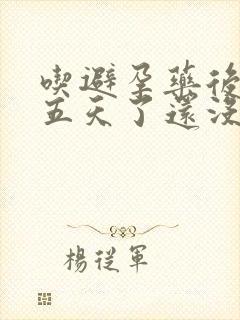 喫避孕藥後
五天了還沒
楊從軍